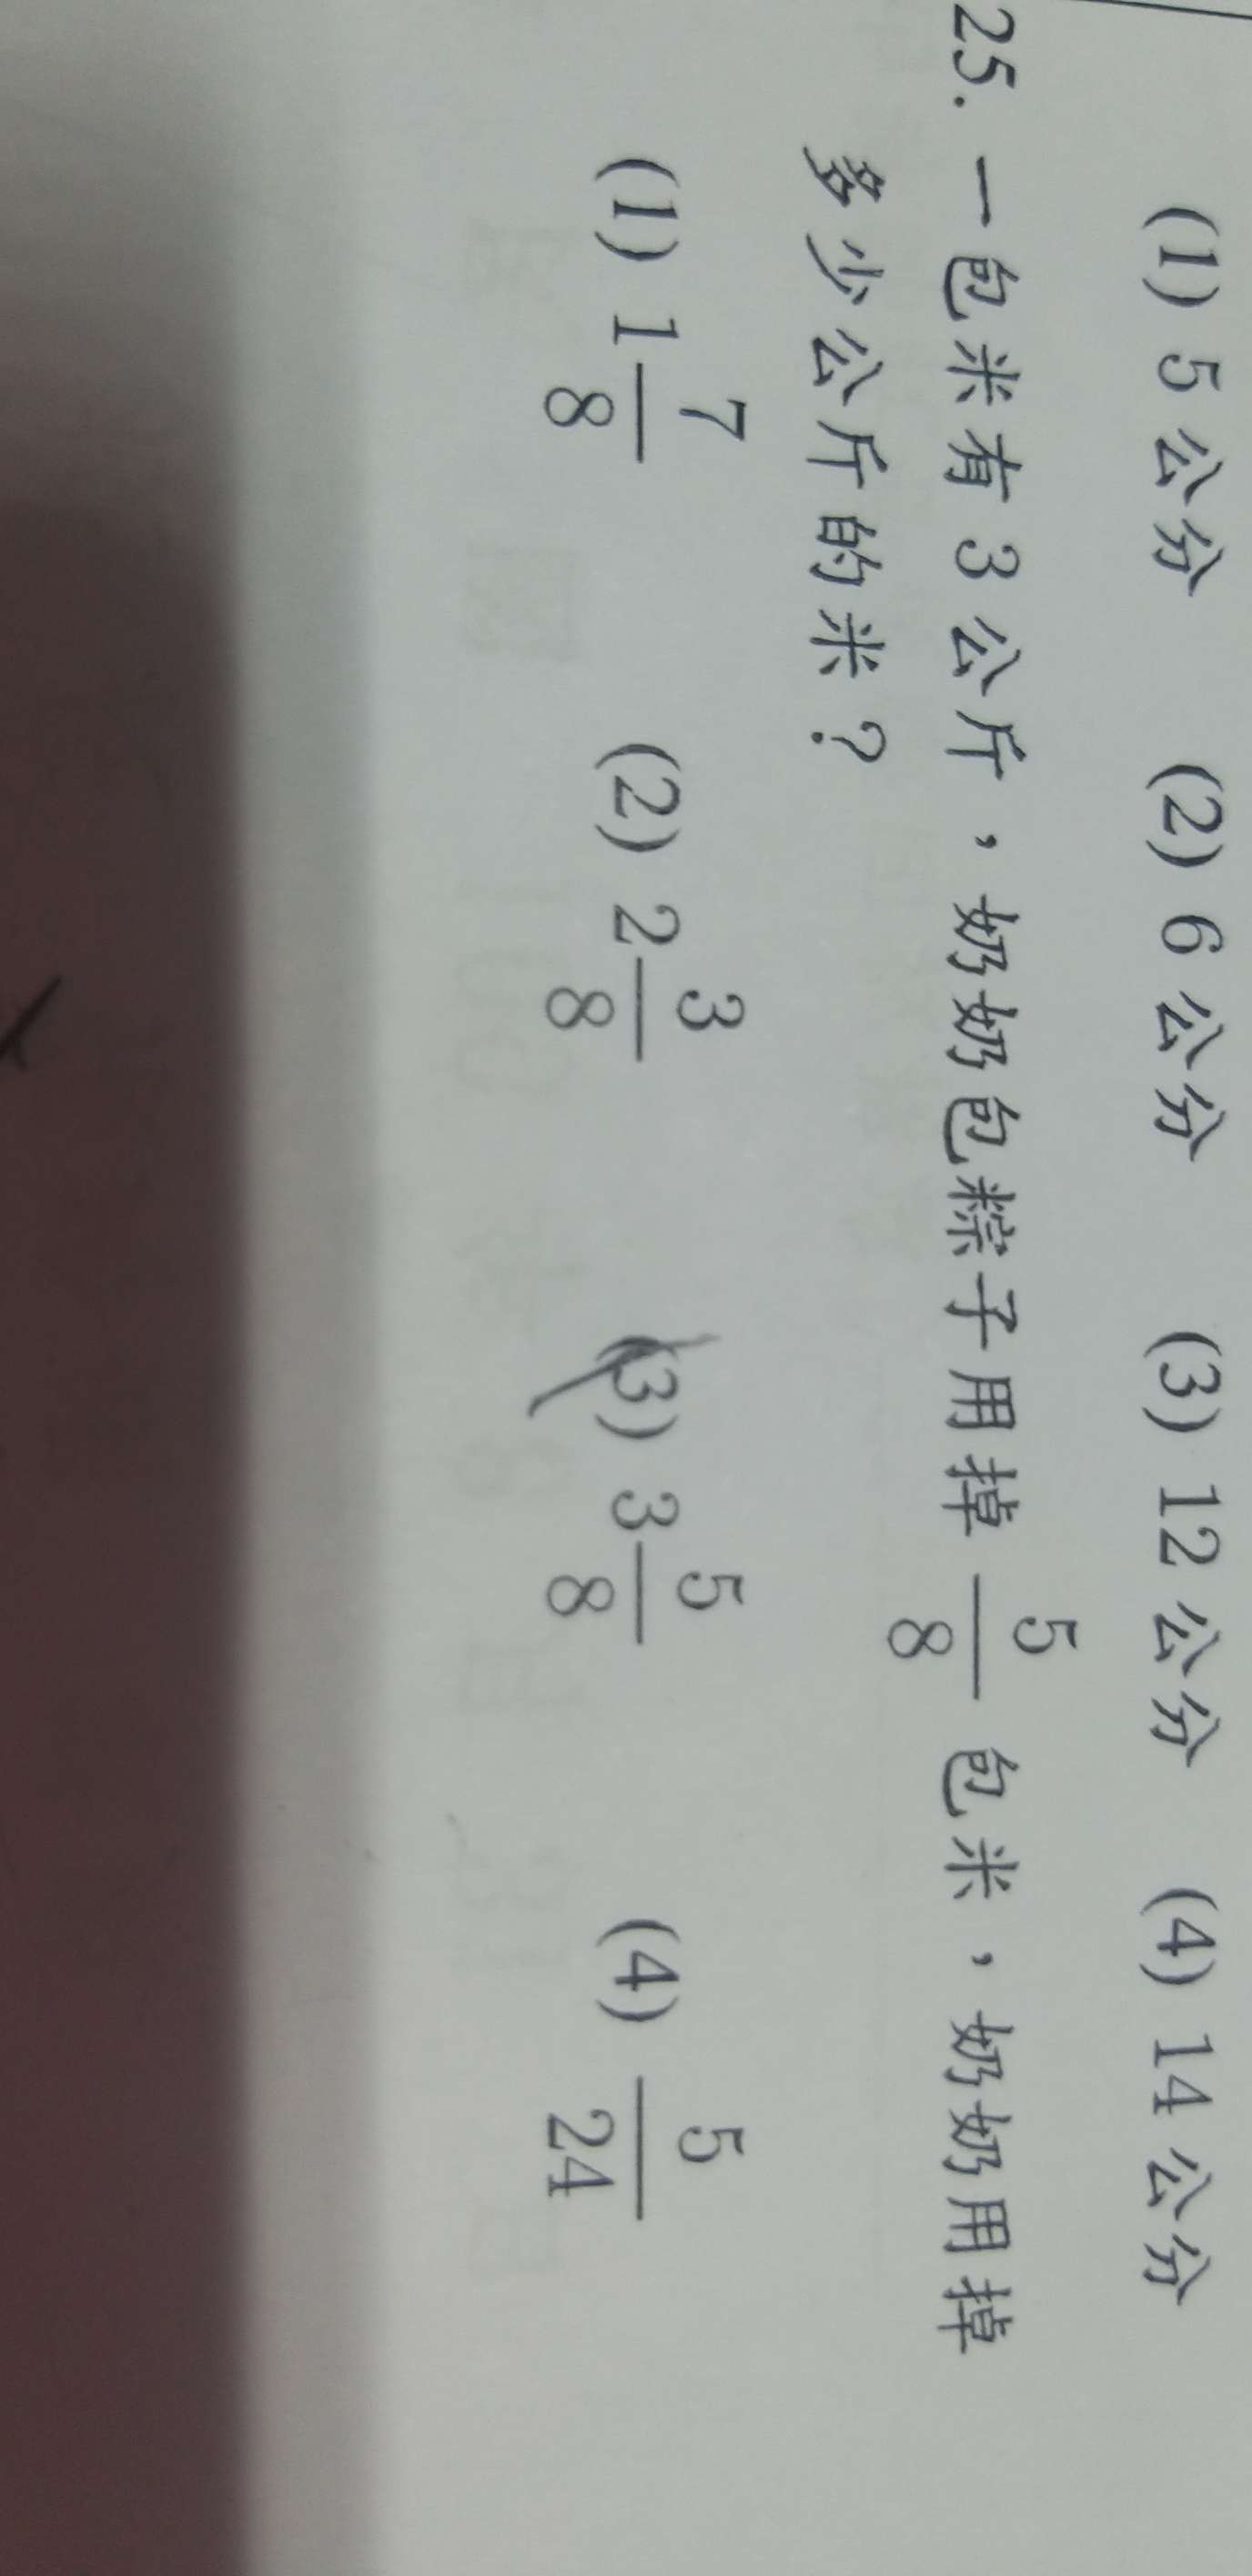 (1) 5 公分 (2) 6 公分 (3) 12 公分 (4) 14 公分
25. 一包米有 3 公斤，奶奶包粽子用掉 5/8 包米，奶奶用掉
多少公斤的米？
(1) 1 7/8 (2) 2 3/8 (3) 3 5/8 (4) 5/24